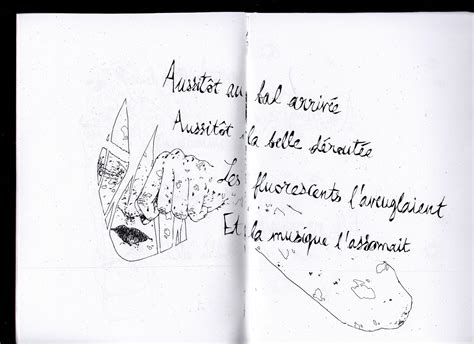 Aussitôt au bal arrivée
Aussitôt la belle déroutée
Les fluorescents l'aveuglaient
Et la musique l'assomait